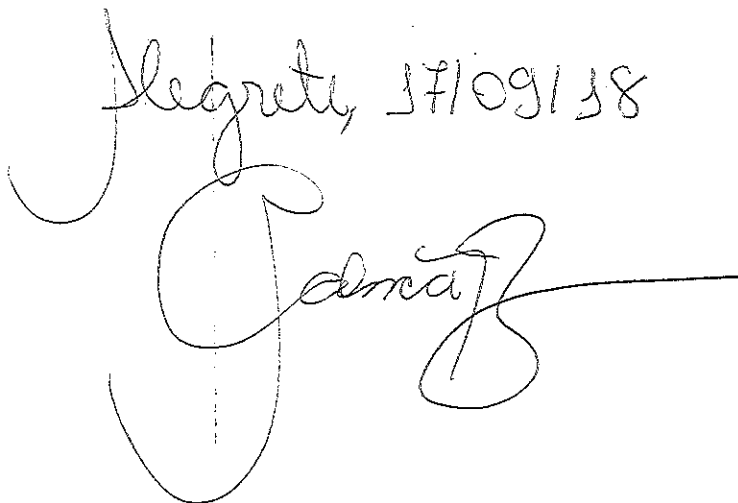 Alegrete, 17/09/18